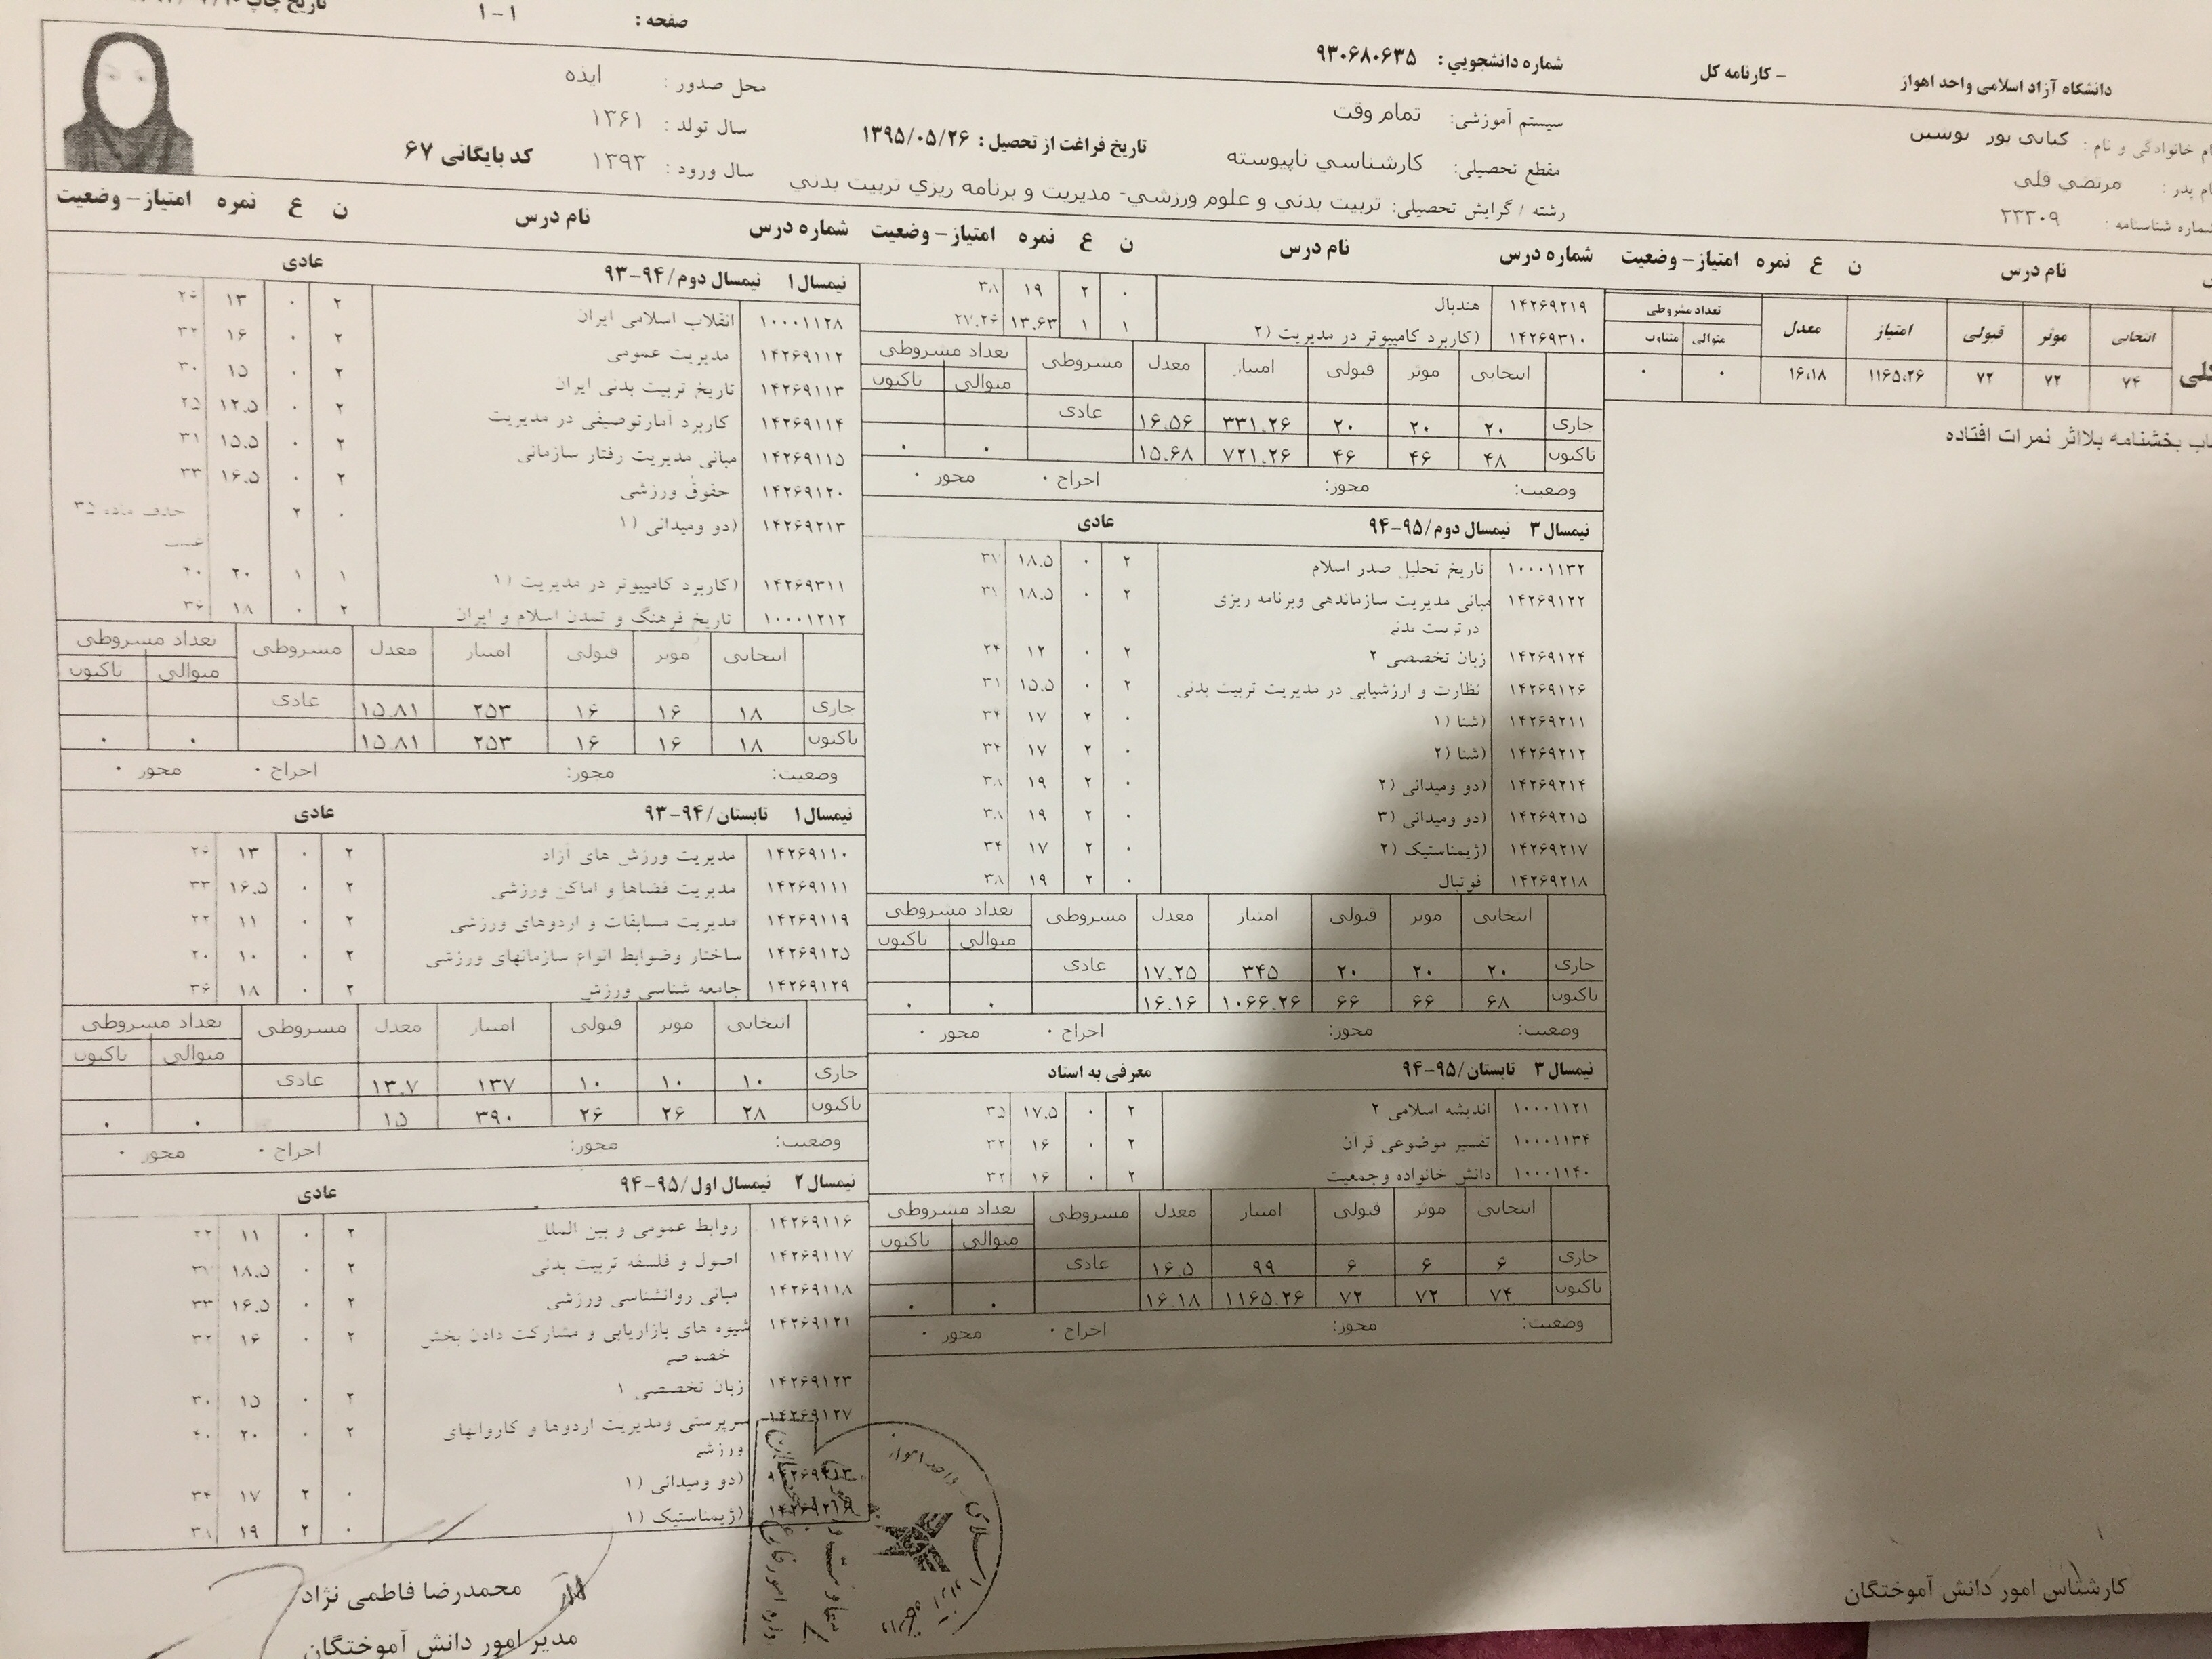 صفحه : ۱-۱
دانشگاه آزاد اسلامی واحد اهواز - کارنامه کل شماره دانشجویي : ۹۳۰۶۸۰۶۳۵
نام خانوادگی و نام : کیانی پور نوشین سیستم آموزشی: تمام وقت محل صدور : ایذه
نام پدر : مرتضي قلی مقطع تحصیلی: کارشناسي ناپیوسته تاریخ فراغت از تحصیل : ۱۳۹۵/۰۵/۲۶ سال تولد : ۱۳۶۱
شماره شناسنامه : ۲۳۳۰۹ رشته / گرایش تحصیلی: تربیت بدني و علوم ورزشي- مدیریت و برنامه ریزي تربیت بدني سال ورود : ۱۳۹۳ کد بایگانی ۶۷
نام درس ن ع نمره امتیاز- وضعیت شماره درس نام درس ن ع نمره امتیاز- وضعیت شماره درس نام درس ن ع نمره امتیاز- وضعیت
انتخابی موثر قبولی امتیاز معدل تعداد مشروطی
متوالی متناوب
کلی ۷۴ ۷۲ ۷۲ ۱۱۶۵.۲۶ ۱۶.۱۸ ۰ ۰
بخشنامه بلااثر نمرات افتاده
۱۴۲۶۹۲۱۹ هندبال ۰ ۲ ۱۹ ۳۸
۱۴۲۶۹۳۱۰ (کاربرد کامپیوتر در مدیریت (۲ ۱ ۱ ۱۳.۶۳ ۲۷.۲۶
انتخابی موثر قبولی امتیاز معدل مشروطی تعداد مشروطی
متوالی تاکنون
جاری ۲۰ ۲۰ ۲۰ ۳۳۱.۲۶ ۱۶.۵۶ عادی
تاکنون ۴۸ ۴۶ ۴۶ ۷۲۱.۲۶ ۱۵.۶۸ ۰ ۰
وضعیت: محور: اخراج ۰ محور ۰
نیمسال ۳ نیمسال دوم/۹۵-۹۴ عادی
۱۰۰۰۱۱۳۲ تاریخ تحلیل صدر اسلام ۲ ۰ ۱۸.۵ ۳۷
۱۴۲۶۹۱۲۲ مبانی مدیریت سازماندهی وبرنامه ریزی ۲ ۰ ۱۸.۵ ۳۷
درتربیت بدنی
۱۴۲۶۹۱۲۴ زبان تخصصی ۲ ۲ ۰ ۱۲ ۲۴
۱۴۲۶۹۱۲۶ نظارت و ارزشیابی در مدیریت تربیت بدنی ۲ ۰ ۱۵.۵ ۳۱
۱۴۲۶۹۲۱۱ (شنا (۱ ۰ ۲ ۱۷ ۳۴
۱۴۲۶۹۲۱۲ (شنا (۲ ۰ ۲ ۱۷ ۳۴
۱۴۲۶۹۲۱۴ (دو ومیدانی (۲ ۰ ۲ ۱۹ ۳۸
۱۴۲۶۹۲۱۵ (دو ومیدانی (۳ ۰ ۲ ۱۹ ۳۸
۱۴۲۶۹۲۱۷ (ژیمناستیک (۲ ۰ ۲ ۱۷ ۳۴
۱۴۲۶۹۲۱۸ فوتبال ۰ ۲ ۱۹ ۳۸
انتخابی موثر قبولی امتیاز معدل مشروطی تعداد مشروطی
متوالی تاکنون
جاری ۲۰ ۲۰ ۲۰ ۳۴۵ ۱۷.۲۵ عادی
تاکنون ۶۸ ۶۶ ۶۶ ۱۰۶۶.۲۶ ۱۶.۱۶ ۰ ۰
وضعیت: محور: اخراج ۰ محور ۰
نیمسال ۳ تابستان/۹۵-۹۴ معرفی به استاد
۱۰۰۰۱۱۲۱ اندیشه اسلامی ۲ ۲ ۰ ۱۷.۵ ۳۵
۱۰۰۰۱۱۳۴ تفسیر موضوعی قرآن ۲ ۰ ۱۶ ۳۲
۱۰۰۰۱۱۴۰ دانش خانواده وجمعیت ۲ ۰ ۱۶ ۳۲
انتخابی موثر قبولی امتیاز معدل مشروطی تعداد مشروطی
متوالی تاکنون
جاری ۶ ۶ ۶ ۹۹ ۱۶.۵ عادی
تاکنون ۷۴ ۷۲ ۷۲ ۱۱۶۵.۲۶ ۱۶.۱۸ ۰ ۰
وضعیت: محور: اخراج ۰ محور ۰
نیمسال ۱ نیمسال دوم/۹۴-۹۳ عادی
۱۰۰۰۱۱۲۸ انقلاب اسلامی ایران ۲ ۰ ۱۳ ۲۶
۱۴۲۶۹۱۱۲ مدیریت عمومی ۲ ۰ ۱۶ ۳۲
۱۴۲۶۹۱۱۳ تاریخ تربیت بدنی ایران ۲ ۰ ۱۵ ۳۰
۱۴۲۶۹۱۱۴ کاربرد آمارتوصیفی در مدیریت ۲ ۰ ۱۲.۵ ۲۵
۱۴۲۶۹۱۱۵ مبانی مدیریت رفتار سازمانی ۲ ۰ ۱۵.۵ ۳۱
۱۴۲۶۹۱۲۰ حقوق ورزشی ۲ ۰ ۱۶.۵ ۳۳
۱۴۲۶۹۲۱۳ (دو ومیدانی (۱ ۰ ۲ حذف ماده ۳۵
غیبت
۱۴۲۶۹۳۱۱ (کاربرد کامپیوتر در مدیریت (۱ ۱ ۱ ۲۰ ۴۰
۱۰۰۰۱۲۱۲ تاریخ فرهنگ و تمدن اسلام و ایران ۲ ۰ ۱۸ ۳۶
انتخابی موثر قبولی امتیاز معدل مشروطی تعداد مشروطی
متوالی تاکنون
جاری ۱۸ ۱۶ ۱۶ ۲۵۳ ۱۵.۸۱ عادی
تاکنون ۱۸ ۱۶ ۱۶ ۲۵۳ ۱۵.۸۱ ۰ ۰
وضعیت: محور: اخراج ۰ محور ۰
نیمسال ۱ تابستان/۹۴-۹۳ عادی
۱۴۲۶۹۱۱۰ مدیریت ورزش های آزاد ۲ ۰ ۱۳ ۲۶
۱۴۲۶۹۱۱۱ مدیریت فضاها و اماکن ورزشی ۲ ۰ ۱۶.۵ ۳۳
۱۴۲۶۹۱۱۹ مدیریت مسابقات و اردوهای ورزشی ۲ ۰ ۱۱ ۲۲
۱۴۲۶۹۱۲۵ ساختار وضوابط انواع سازمانهای ورزشی ۲ ۰ ۱۰ ۲۰
۱۴۲۶۹۱۲۹ جامعه شناسی ورزش ۲ ۰ ۱۸ ۳۶
انتخابی موثر قبولی امتیاز معدل مشروطی تعداد مشروطی
متوالی تاکنون
جاری ۱۰ ۱۰ ۱۰ ۱۳۷ ۱۳.۷ عادی
تاکنون ۲۸ ۲۶ ۲۶ ۳۹۰ ۱۵ ۰ ۰
وضعیت: محور: اخراج ۰ محور ۰
نیمسال ۲ نیمسال اول/۹۵-۹۴ عادی
۱۴۲۶۹۱۱۶ روابط عمومی و بین الملل ۲ ۰ ۱۱ ۲۲
۱۴۲۶۹۱۱۷ اصول و فلسفه تربیت بدنی ۲ ۰ ۱۸.۵ ۳۷
۱۴۲۶۹۱۱۸ مبانی روانشناسی ورزشی ۲ ۰ ۱۶.۵ ۳۳
۱۴۲۶۹۱۲۱ شیوه های بازاریابی و مشارکت دادن بخش ۲ ۰ ۱۶ ۳۲
خصوصی
۱۴۲۶۹۱۲۳ زبان تخصصی ۱ ۲ ۰ ۱۵ ۳۰
۱۴۲۶۹۱۲۷ سرپرستی ومدیریت اردوها و کاروانهای ۲ ۰ ۲۰ ۴۰
ورزشی
۱۴۲۶۹۲۱۳ (دو ومیدانی (۱ ۰ ۲ ۱۷ ۳۴
۱۴۲۶۹۲۱۶ (ژیمناستیک (۱ ۰ ۲ ۱۹ ۳۸
واحد اهواز
اسلامی
کارشناس امور دانش آموختگان
محمدرضا فاطمی نژاد
مدیر امور دانش آموختگان